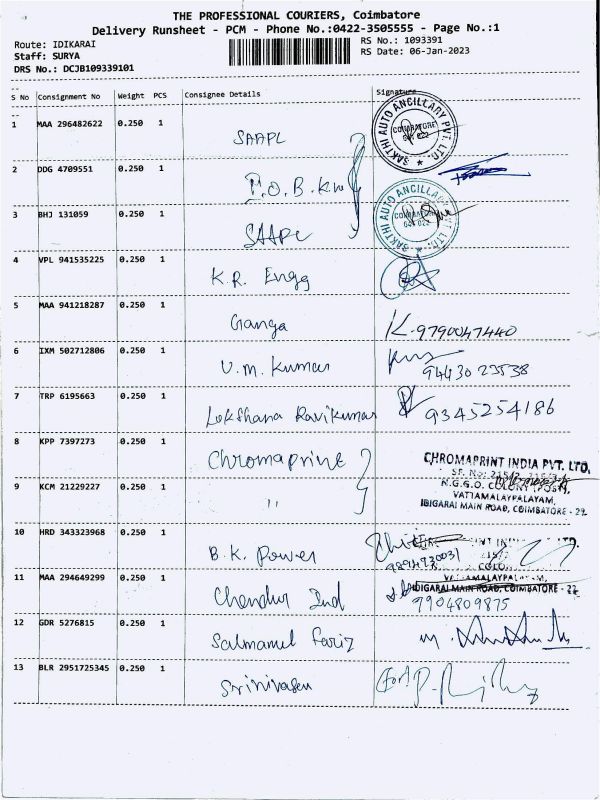 THE PROFESSIONAL COURIERS, Coimbatore
Delivery Runsheet - PCM - Phone No.:0422-3505555 - Page No.:1
Route: IDIKARAI
RS No.: 1093391
Staff: SURYA
RS Date: 06-Jan-2023
DRS No.: DCJB109339101
S No Consignment No Weight PCS Consignee Details Signature
1 MAA 296482622 0.250 1 SAAPL
SAKTHI AUTO ANCILLARY PVT. LTD. COIMBATORE
2 DDG 4709551 0.250 1
3 BHJ 131059 0.250 1 SAAPL
SAKTHI AUTO ANCILLARY PVT. LTD.
4 VPL 941535225 0.250 1 K.R. Engg
5 MAA 941218287 0.250 1 Ganga 9790047440
6 IXM 502712806 0.250 1 V.M. Kumar 94430 23538
7 TRP 6195663 0.250 1 Lekshana Ravikumar 9345254186
8 KPP 7397273 0.250 1 Chromaprint
CHROMAPRINT INDIA PVT. LTD.
N.G.G.O. COLONY (POST),
9 KCM 21229227 0.250 1 "
VATTAMALAYPALAYAM,
IDIGARAI MAIN ROAD, COIMBATORE - 22
10 HRD 343323968 0.250 1 B.K. Power
11 MAA 294649299 0.250 1 Chendur Ind
IDIGARAI MAIN ROAD, COIMBATORE - 22
9904809875
12 GDR 5276815 0.250 1 Salmanul Fariz
13 BLR 2951725345 0.250 1 Srinivasan